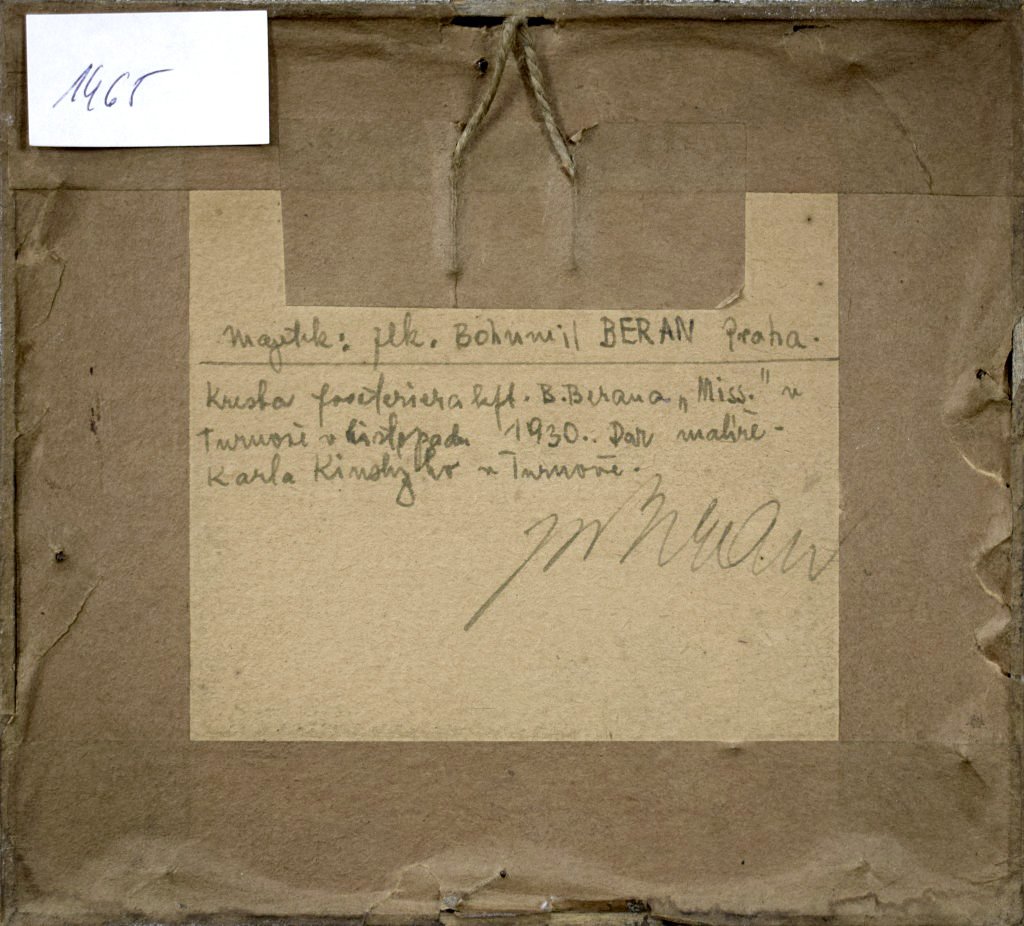 1465
Majetek: plk. Bohumil BERAN Praha.
Kresba foxteriera kpt. B. Berana „Miss." v
Turnově v listopadu 1930.. Dar malíře
Karla Kinského v Turnově.